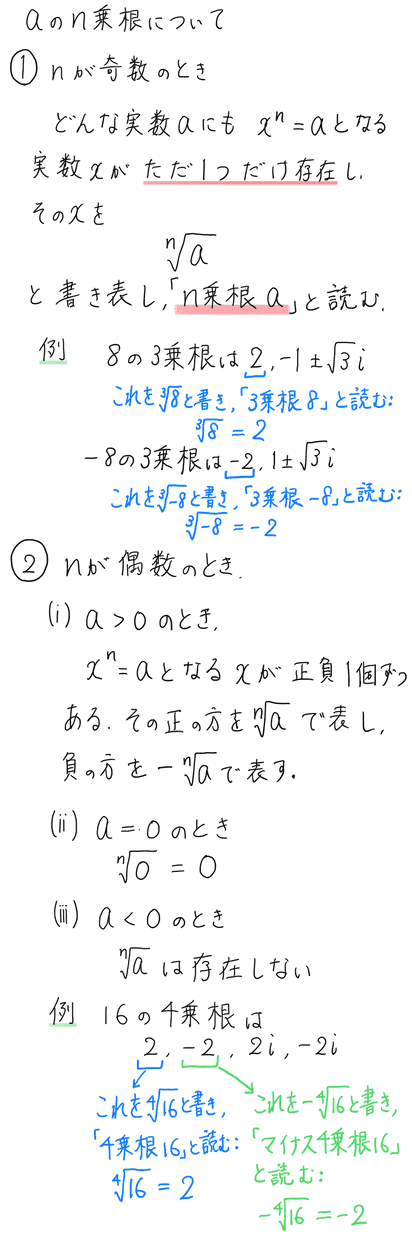 aのn乗根について
① nが奇数のとき
どんな実数aにも xⁿ=aとなる
実数xが ただ1つだけ存在し,
そのxを
ⁿ√a
と書き表し,「n乗根a」と読む.
例 8の3乗根は 2, -1±√3i
これを³√8と書き,「3乗根8」と読む:
³√8 = 2
-8の3乗根は -2, 1±√3i
これを³√-8と書き,「3乗根-8」と読む:
³√-8 = -2
② nが偶数のとき.
(i) a>0のとき,
xⁿ=aとなるxが正負1個ずつ
ある. その正の方をⁿ√aで表し,
負の方を-ⁿ√aで表す.
(ii) a=0のとき
ⁿ√0 = 0
(iii) a<0のとき
ⁿ√aは存在しない
例 16の4乗根は
2, -2, 2i, -2i
これを⁴√16と書き,
「4乗根16」と読む:
⁴√16 = 2
これを-⁴√16と書き,
「マイナス4乗根16」
と読む:
-⁴√16 = -2